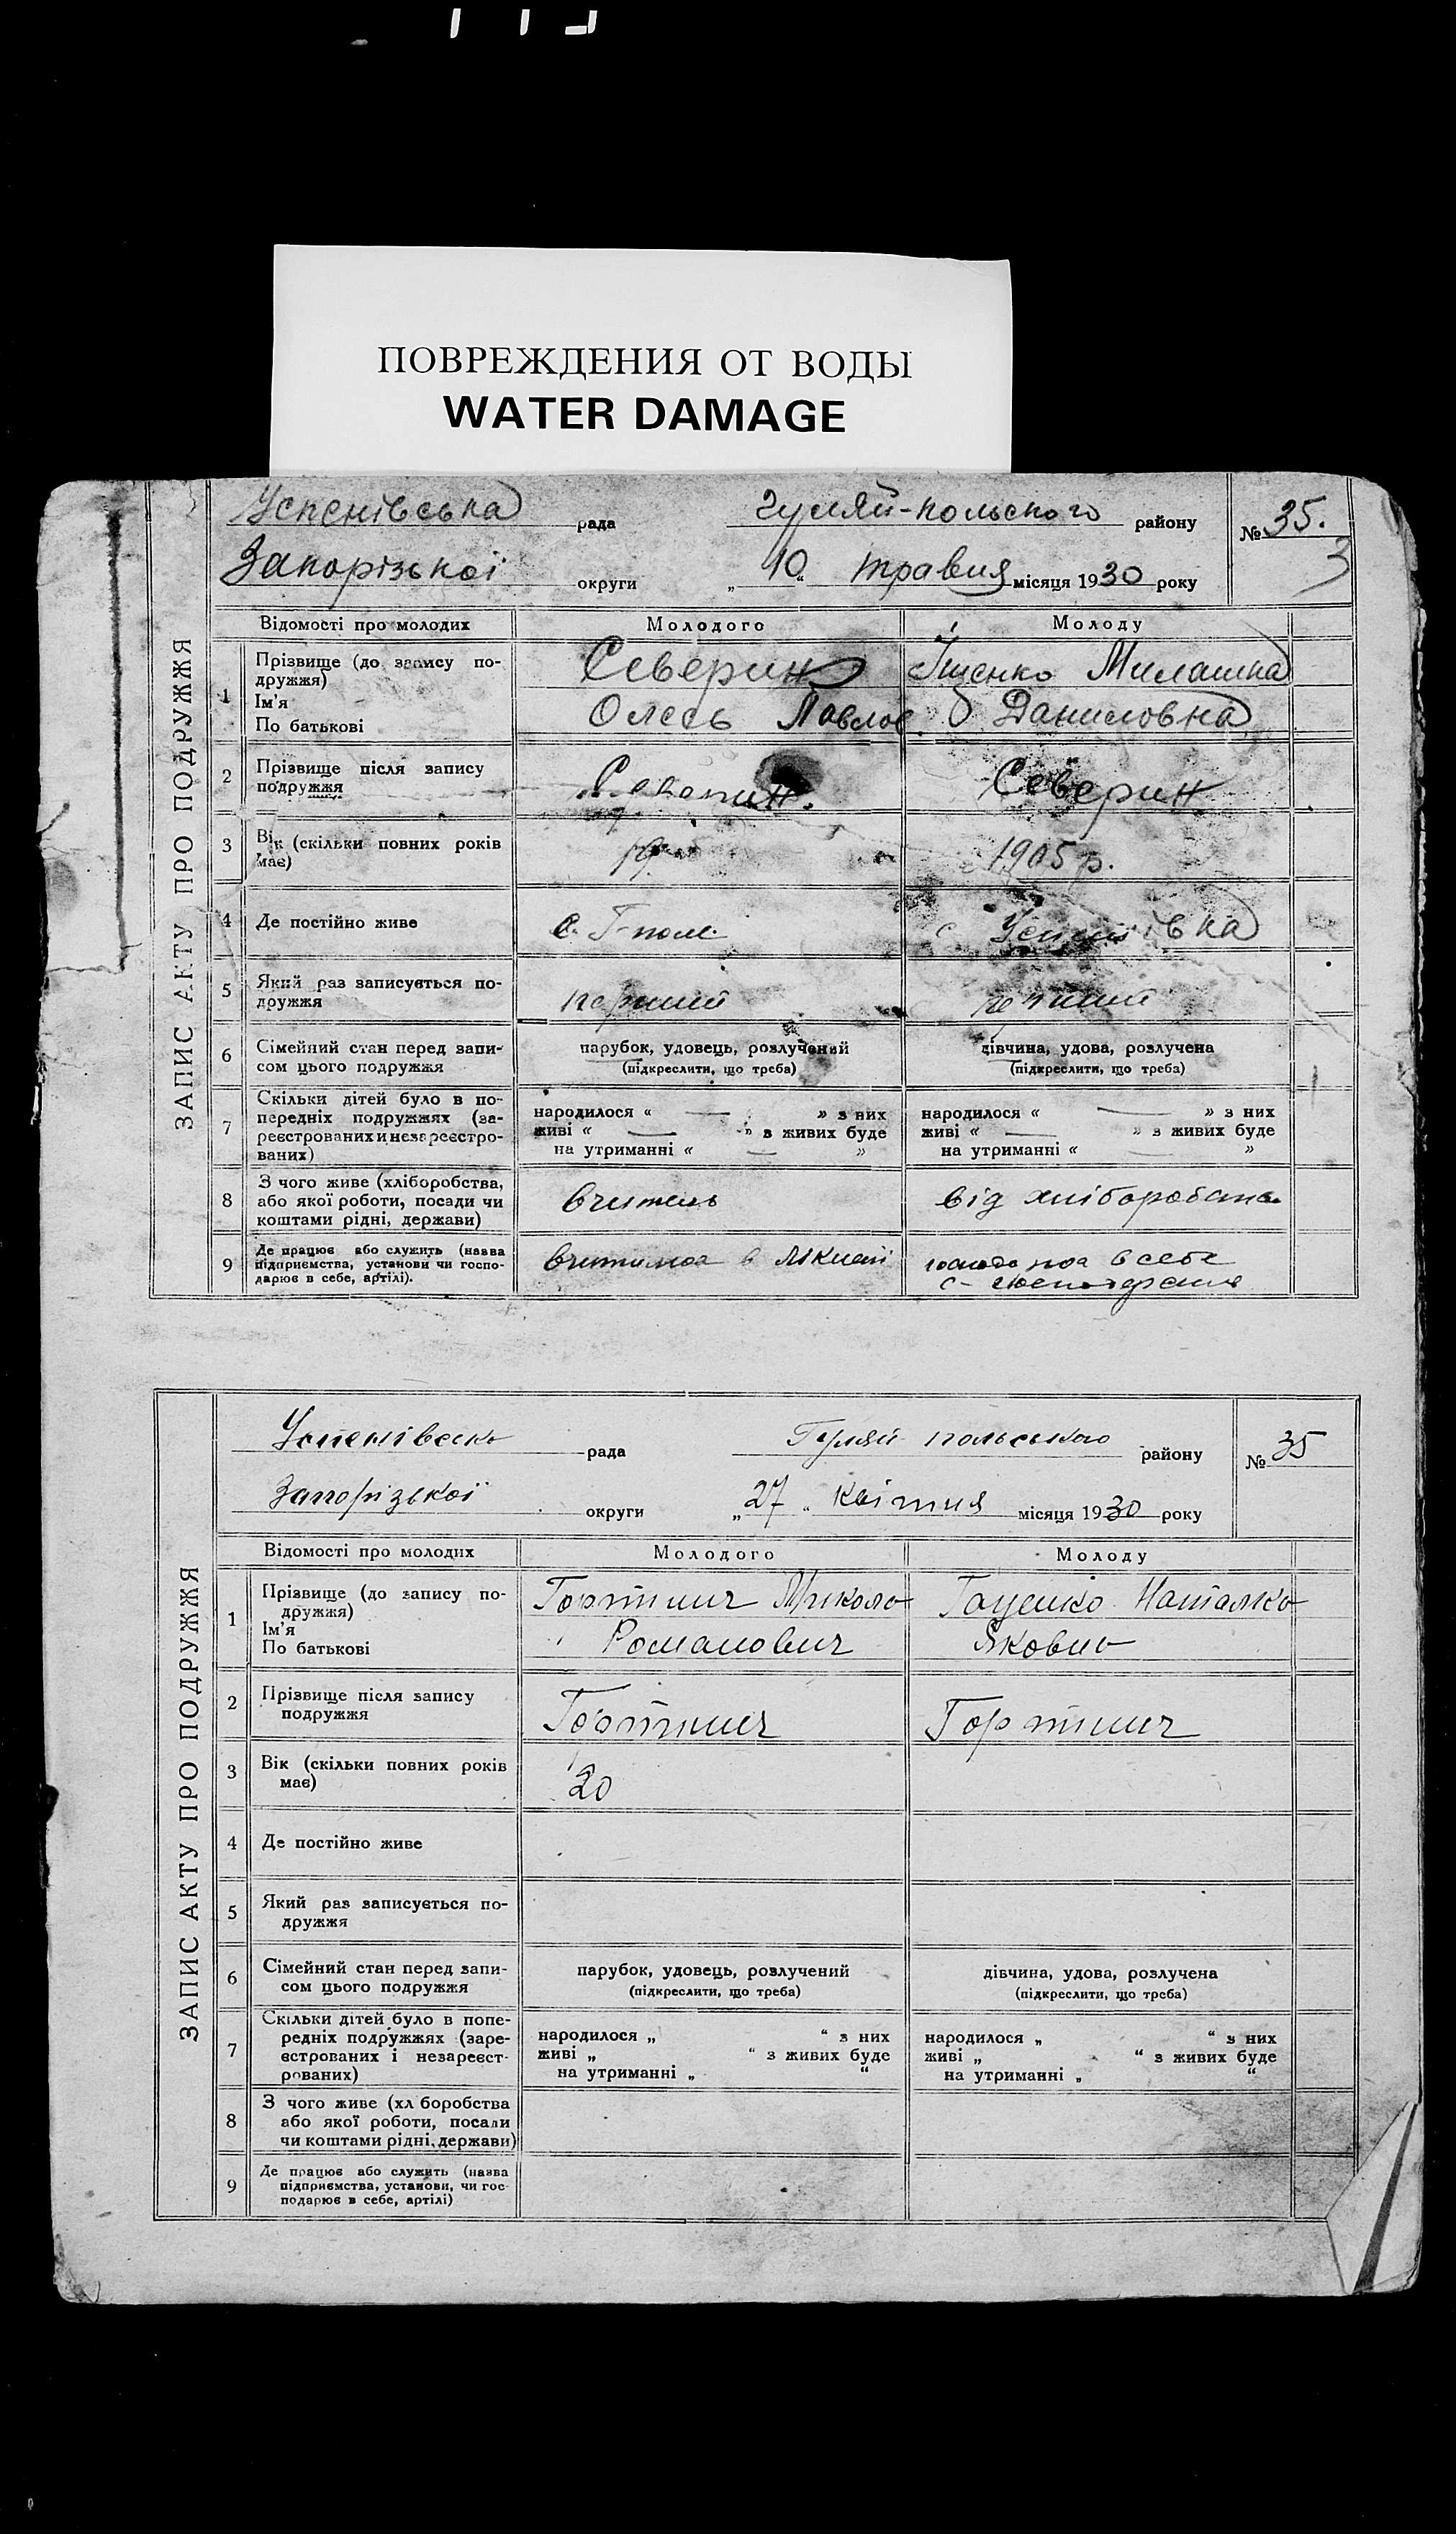 ПОВРЕЖДЕНИЯ ОТ ВОДЫ
WATER DAMAGE
ЗАПИС АКТУ ПРО ПОДРУЖЖЯ
Успенівська рада Гуляй-польского району № 35.
3
Запорізької округи „10“ травня місяця 1930 року
Відомості про молодих Молодого Молоду
1 Прізвище (до запису подружжя) Северин Іщенко Милашка
Ім'я
По батькові Олесь Павлов. Даниловна
2 Прізвище після запису Северин. Северин
подружжя
3 Вік (скільки повних років 19 1905 р.
має)
4 Де постійно живе с. Г-поле с Успенівка
5 Який раз записується по- перший перший
дружжя
6 Сімейний стан перед запи- парубок, удовець, розлучений дівчина, удова, розлучена
сом цього подружжя (підкреслити, що треба) (підкреслити, що треба)
7 Скільки дітей було в по-
передніх подружжях (за- народилося « — » з них народилося « — » з них
реєстрованих и незареєстро- живі « — » з живих буде живі « — » з живих буде
ваних) на утриманні « — » на утриманні « — »
8 З чого живе (хліборобства,
або якої роботи, посади чи вчитель від хліборобства
коштами рідні, держави)
9 Де працює або служить (назва в себе
підприємства, установи чи госпо-
дарює в себе, артілі).
ЗАПИС АКТУ ПРО ПОДРУЖЖЯ
Успенівська рада Гуляй польського району № 35
Запорізької округи „27“ квітня місяця 1930 року
Відомості про молодих Молодого Молоду
1 Прізвище (до запису по- Микола Гаценко Наталка
дружжя)
Ім'я Романович Яковна
По батькові
2 Прізвище після запису
подружжя
3 Вік (скільки повних років 20
має)
4 Де постійно живе
5 Який раз записується по-
дружжя
6 Сімейний стан перед запи- парубок, удовець, розлучений дівчина, удова, розлучена
сом цього подружжя (підкреслити, що треба) (підкреслити, що треба)
7 Скільки дітей було в попе-
редніх подружжях (заре- народилося „ “ з них народилося „ “ з них
єстрованих і незареєст- живі „ “ з живих буде живі „ “ з живих буде
рованих) на утриманні „ “ на утриманні „ “
8 З чого живе (хл боробства
або якої роботи, посади
чи коштами рідні, держави)
9 Де працює або служить (назва
підприємства, установи, чи гос-
подарює в себе, артілі)